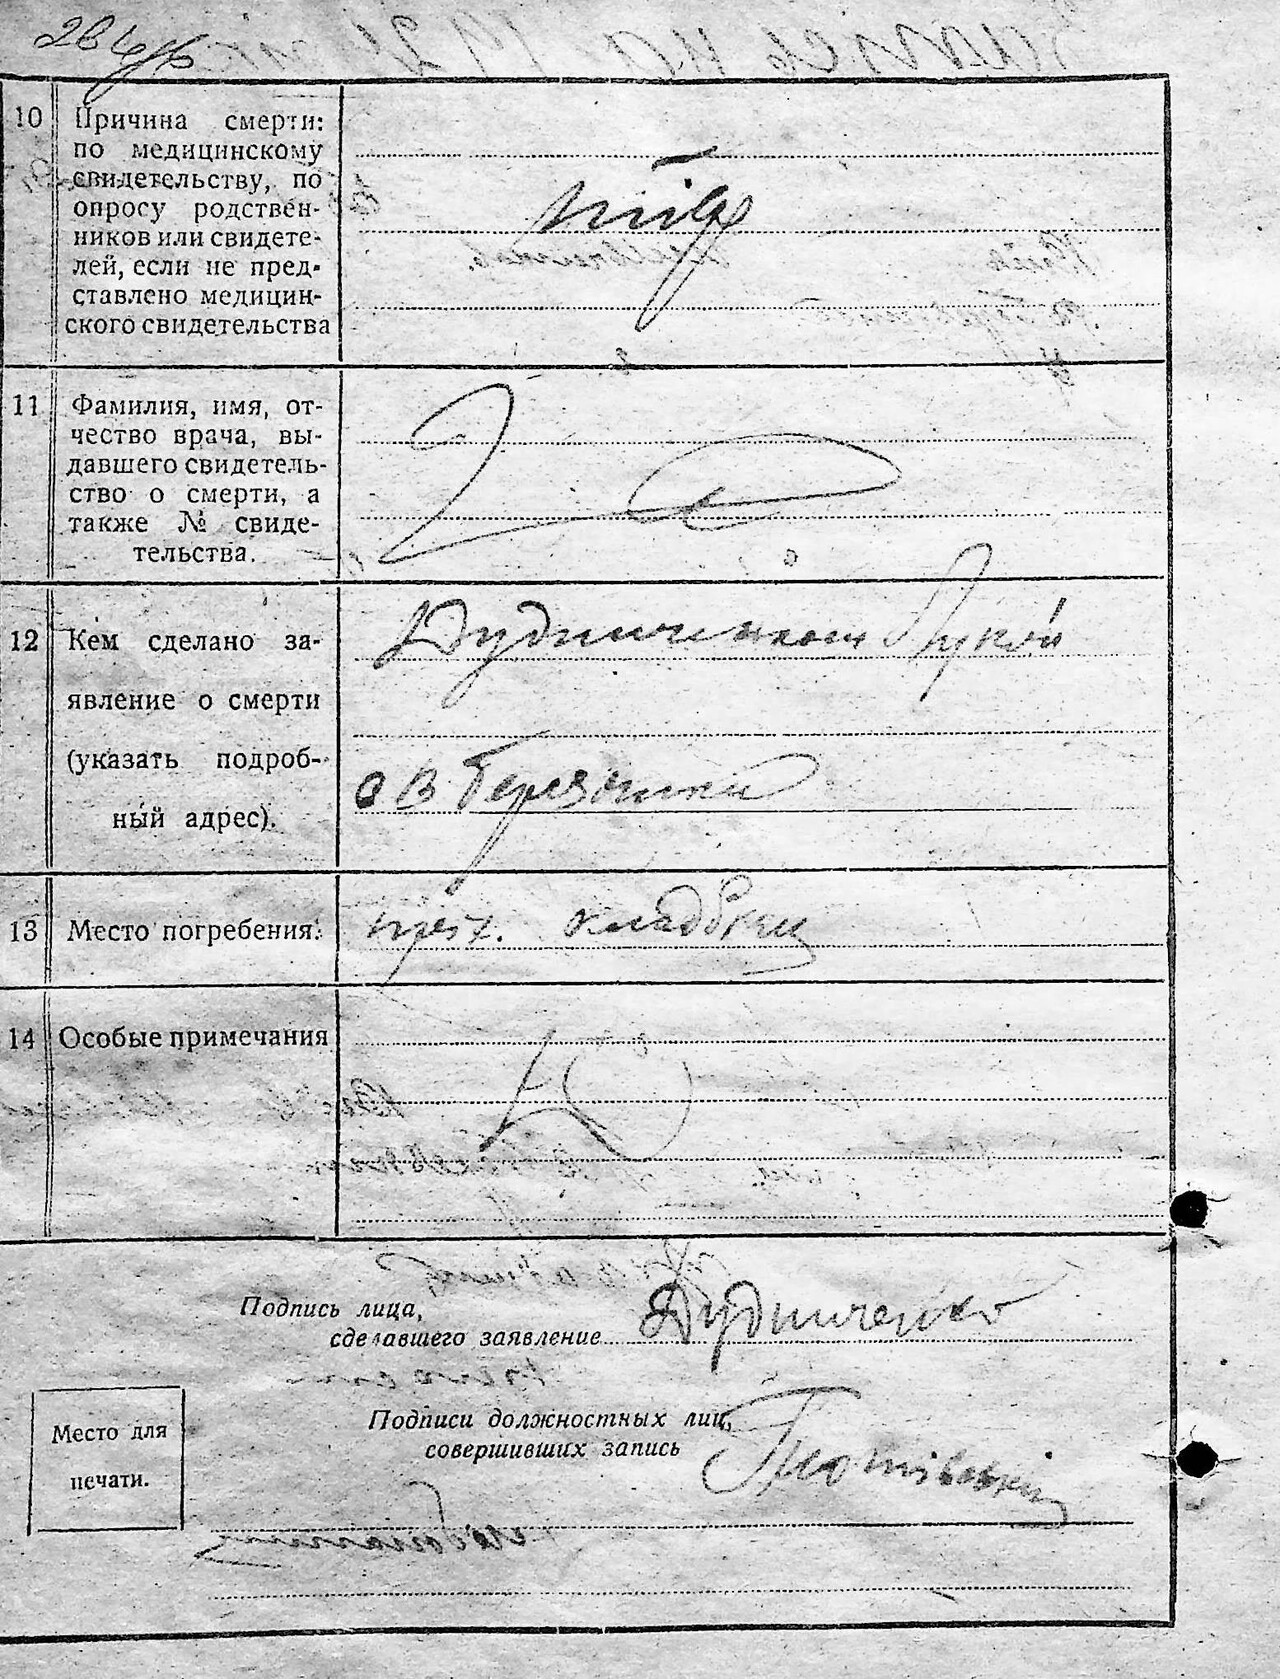 10
Причина смерти:
по медицинскому
свидетельству, по
опросу родствен-
ников или свидете-
лей, если не пред-
ставлено медицин-
ского свидетельства
11
Фамилия, имя, от-
чество врача, вы-
давшего свидетель-
ство о смерти, а
также № свиде-
тельства.
12
Кем сделано за-
явление о смерти
(указать подроб-
ный адрес).
Дудниченком Лукой
Березники
13
Место погребения:
кладбищ
14
Особые примечания
Подпись лица,
сделавшего заявление
Дудниченко
Подписи должностных лиц,
совершивших запись
Место для
печати.